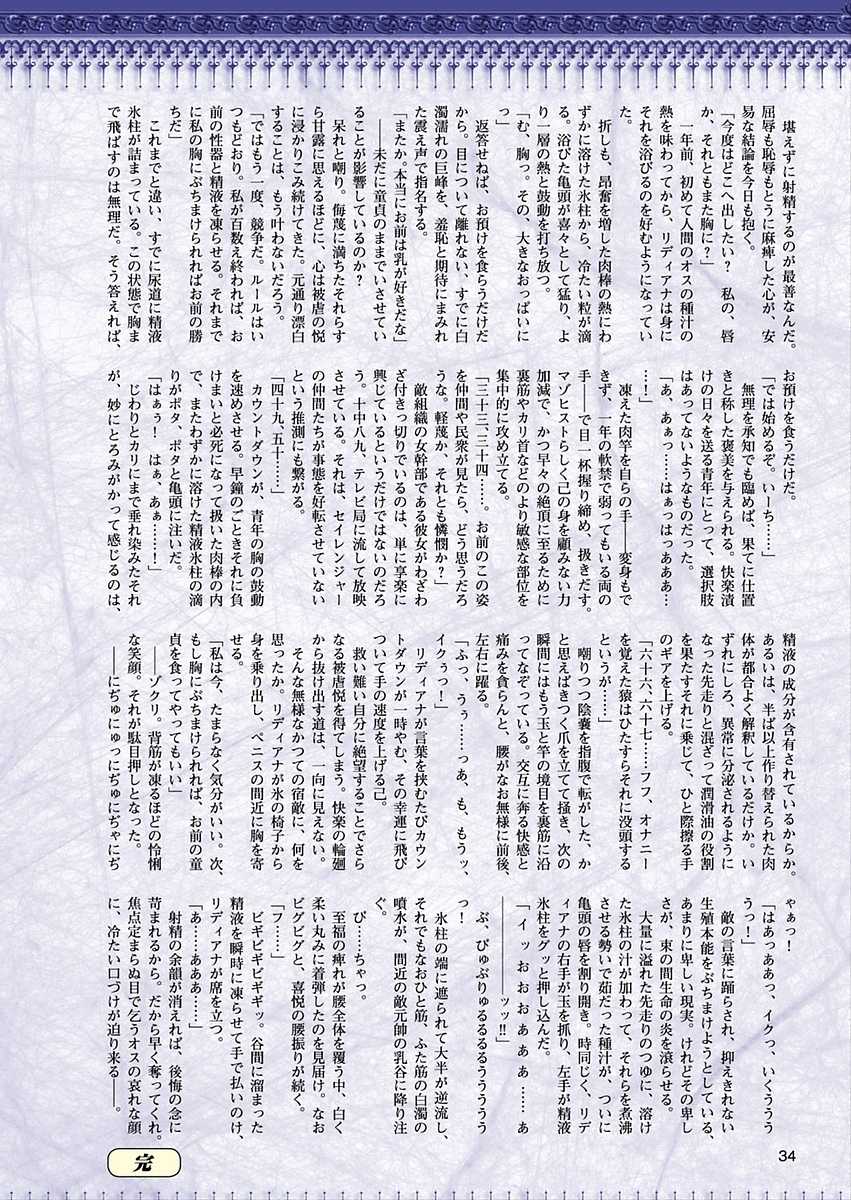 堪えずに射精するのが最善なんだ。
屈辱も恥辱もとうに麻痺した心が、安
易な結論を今日も抱く。
「今度はどこへ出したい？　私の、唇
か、それともまた胸に？」
一年前、初めて人間のオスの種汁の
熱を味わってから、リディアナは身に
それを浴びるのを好むようになってい
た。
折しも、昂奮を増した肉棒の熱にわ
ずかに溶けた氷柱から、冷たい粒が滴
る。浴びた亀頭が喜々として猛り、よ
り一層の熱と鼓動を打ち放つ。
「む、胸っ。その、大きなおっぱいに
っ」
返答せねば、お預けを食らうだけだ
から。目について離れない、すでに白
濁濡れの巨峰を、羞恥と期待にまみれ
た震え声で指名する。
「またか。本当にお前は乳が好きだな」
――未だに童貞のままでいさせてい
ることが影響しているのか？
呆れと嘲り。侮蔑に満ちたそれらす
ら甘露に思えるほどに、心は被虐の悦
に浸かりこみ続けてきた。元通り漂白
することは、もう叶わないだろう。
「ではもう一度、競争だ。ルールはい
つもどおり。私が百数え終われば、お
前の性器と精液を凍らせる。それまで
に私の胸にぶちまけられればお前の勝
ちだ」
これまでと違い、すでに尿道に精液
氷柱が詰まっている。この状態で胸ま
で飛ばすのは無理だ。そう答えれば、
お預けを食うだけだ。
「では始めるぞ。いーち……」
無理を承知でも臨めば、果てに仕置
きと称した褒美を与えられる。快楽漬
けの日々を送る青年にとって、選択肢
はあってないようなものだった。
「あ、あぁっ……はぁっはっあぁぁ…
…！」
凍えた肉竿を自らの手――変身もで
きず、一年の軟禁で弱ってもいる両の
手――で目一杯握り締め、扱きだす。
マゾヒストらしく己の身を顧みない力
加減で、かつ早々の絶頂に至るために
裏筋やカリ首などのより敏感な部位を
集中的に攻め立てる。
「三十三、三十四……。お前のこの姿
を仲間や民衆が見たら、どう思うだろ
うな。軽蔑か、それとも憐憫か？」
敵組織の女幹部である彼女がわざわ
ざ付きっ切りでいるのは、単に享楽に
興じているというだけではないのだろ
う。十中八九、テレビ局に流して放映
させている。それは、セイレンジャー
の仲間たちが事態を好転させていない
という推測にも繋がる。
「四十九、五十……」
カウントダウンが、青年の胸の鼓動
を速めさせる。早鐘のごときそれに負
けまいと必死になって扱いた肉棒の内
で、またわずかに溶けた精液氷柱の滴
りがポタ、ポタと亀頭に注いだ。
「はぁぅ！　はぁ、あぁ……！」
じわりとカリにまで垂れ染みたそれ
が、妙にとろみがかって感じるのは、
精液の成分が含有されているからか。
あるいは、半ば以上作り替えられた肉
体が都合よく解釈しているだけか。い
ずれにしろ、異常に分泌されるように
なった先走りと混ざって潤滑油の役割
を果たすそれに乗じて、ひと際擦る手
のギアを上げる。
「六十六、六十七……フフ、オナニー
を覚えた猿はひたすらそれに没頭する
というが……」
嘲りつつ陰嚢を指腹で転がした、か
と思えばきつく爪を立てて掻き、次の
瞬間にはもう玉と竿の境目を裏筋に沿
ってなぞっている。交互に奔る快感と
痛みを貪らんと、腰がなお無様に前後、
左右に躍る。
「ふっ、うぅ……っあ、も、もうッ、
イクぅっ！」
リディアナが言葉を挟むたびカウン
トダウンが一時やむ、その幸運に飛び
ついて手の速度を上げる己。
救い難い自分に絶望することでさら
なる被虐悦を得てしまう。快楽の輪廻
から抜け出す道は、一向に見えない。
そんな無様なかつての宿敵に、何を
思ったか。リディアナが氷の椅子から
身を乗り出し、ペニスの間近に胸を寄
せる。
「私は今、たまらなく気分がいい。次、
もし胸にぶちまけられれば、お前の童
貞を食ってやってもいい」
――ゾクリ。背筋が凍るほどの怜悧
な笑顔。それが駄目押しとなった。
――にぢゅにゅっにぢゅにぢゃにぢ
ゃぁっ！
「はあっああっ、イクっ、いくううう
うっ！」
敵の言葉に踊らされ、抑えきれない
生殖本能をぶちまけようとしている、
あまりに卑しい現実。けれどその卑し
さが、束の間生命の炎を滾らせる。
大量に溢れた先走りのつゆに、溶け
た氷柱の汁が加わって、それらを煮沸
させる勢いで茹だった種汁が、ついに
亀頭の唇を割り開き。時同じく、リデ
ィアナの右手が玉を抓り、左手が精液
氷柱をグッと押し込んだ。
「イッおおおぁぁぁ……ぁ
――――ッッ‼」
ぶ、びゅぶりゅるるるううううう
っ！
氷柱の端に遮られて大半が逆流し、
それでもなおひと筋、ふた筋の白濁の
噴水が、間近の敵元帥の乳谷に降り注
ぐ。
び……ちゃっ。
至福の痺れが腰全体を覆う中、白く
柔い丸みに着弾したのを見届け。なお
ビグビグと、喜悦の腰振りが続く。
「フ……」
ビギビギビギギッ。谷間に溜まった
精液を瞬時に凍らせて手で払いのけ、
リディアナが席を立つ。
「あ……あああ……」
射精の余韻が消えれば、後悔の念に
苛まれるから。だから早く奪ってくれ。
焦点定まらぬ目で乞うオスの哀れな顔
に、冷たい口づけが迫り来る――。
完
34